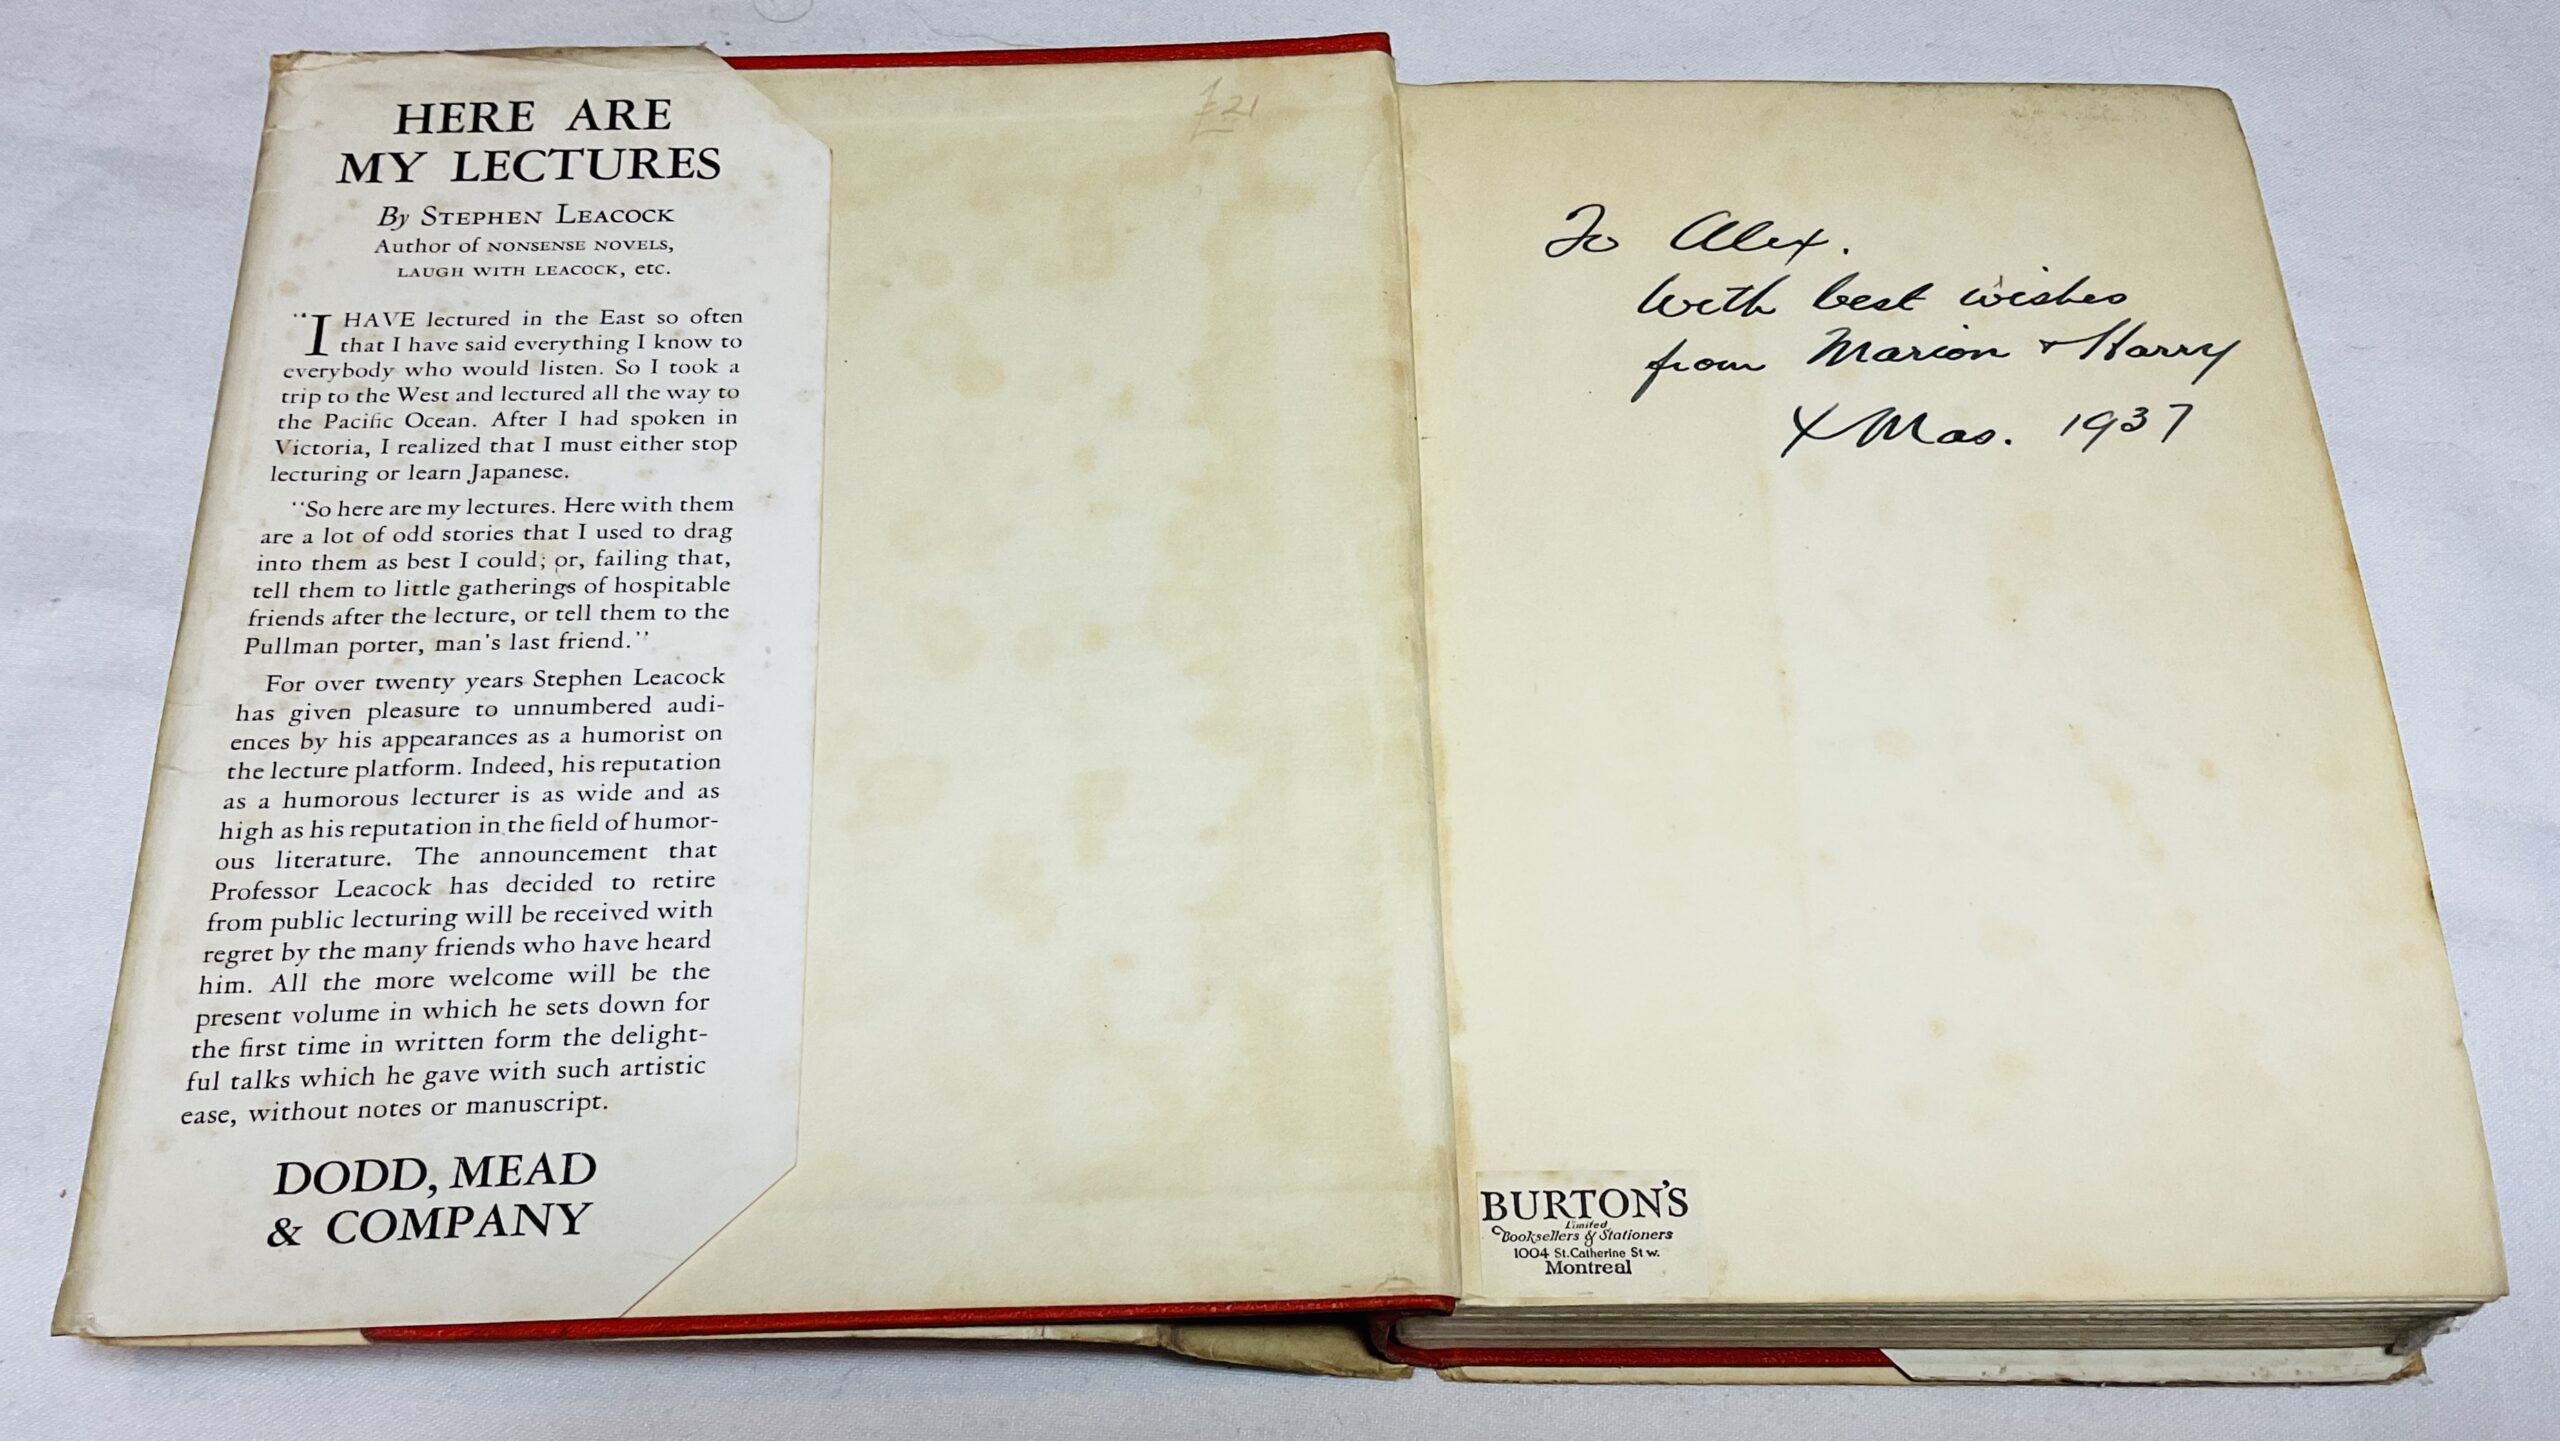 HERE ARE
MY LECTURES
By STEPHEN LEACOCK
Author of NONSENSE NOVELS,
LAUGH WITH LEACOCK, etc.
"I HAVE lectured in the East so often
that I have said everything I know to
everybody who would listen. So I took a
trip to the West and lectured all the way to
the Pacific Ocean. After I had spoken in
Victoria, I realized that I must either stop
lecturing or learn Japanese.
"So here are my lectures. Here with them
are a lot of odd stories that I used to drag
into them as best I could; or, failing that,
tell them to little gatherings of hospitable
friends after the lecture, or tell them to the
Pullman porter, man's last friend."
For over twenty years Stephen Leacock
has given pleasure to unnumbered audi-
ences by his appearances as a humorist on
the lecture platform. Indeed, his reputation
as a humorous lecturer is as wide and as
high as his reputation in the field of humor-
ous literature. The announcement that
Professor Leacock has decided to retire
from public lecturing will be received with
regret by the many friends who have heard
him. All the more welcome will be the
present volume in which he sets down for
the first time in written form the delight-
ful talks which he gave with such artistic
ease, without notes or manuscript.
DODD, MEAD
& COMPANY
£21
To Alex.
With best wishes
from Marion & Harry
XMas. 1937
BURTON'S
Limited
Booksellers & Stationers
1004 St. Catherine St w.
Montreal